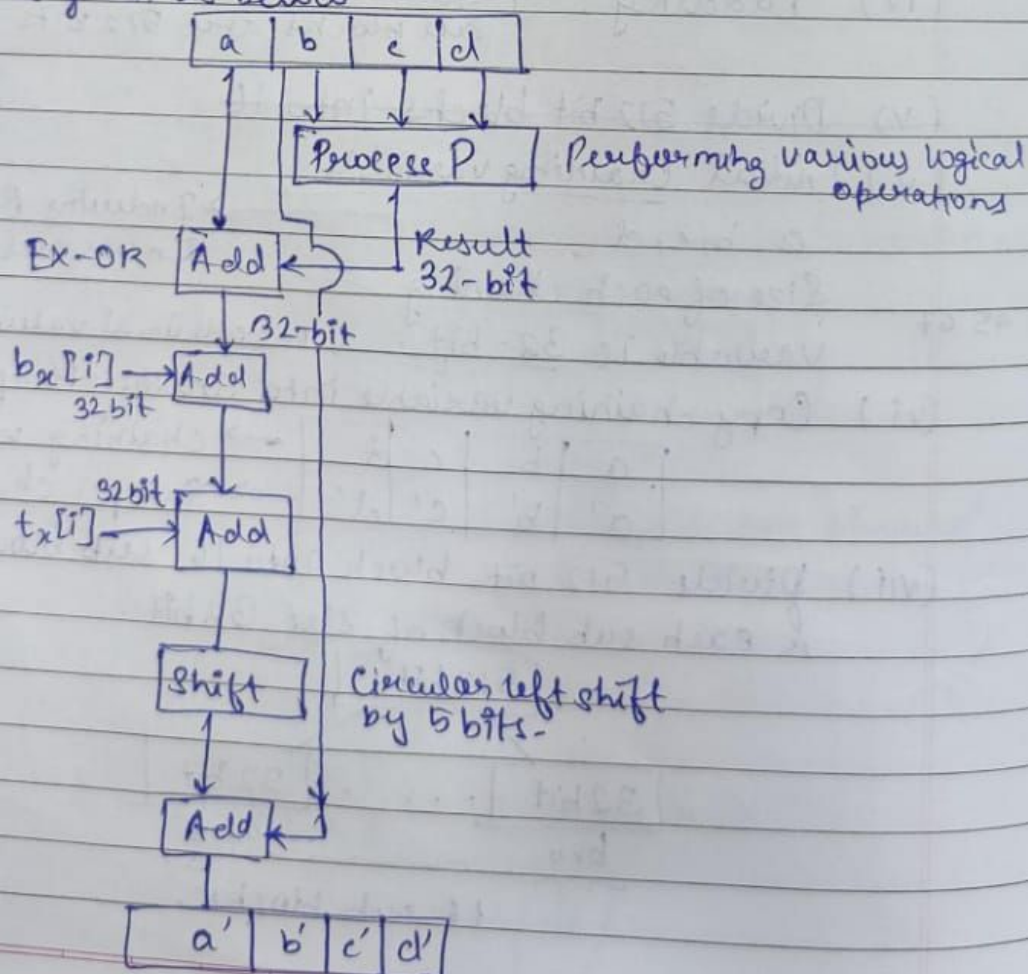 a b c d
Process P Performing various logical
operations
Result
32-bit
EX-OR Add
32-bit
bx[i] Add
32bit
32bit
tx[i] Add
Shift Circular left shift
by 5 bits.
Add
a' b' c' d'